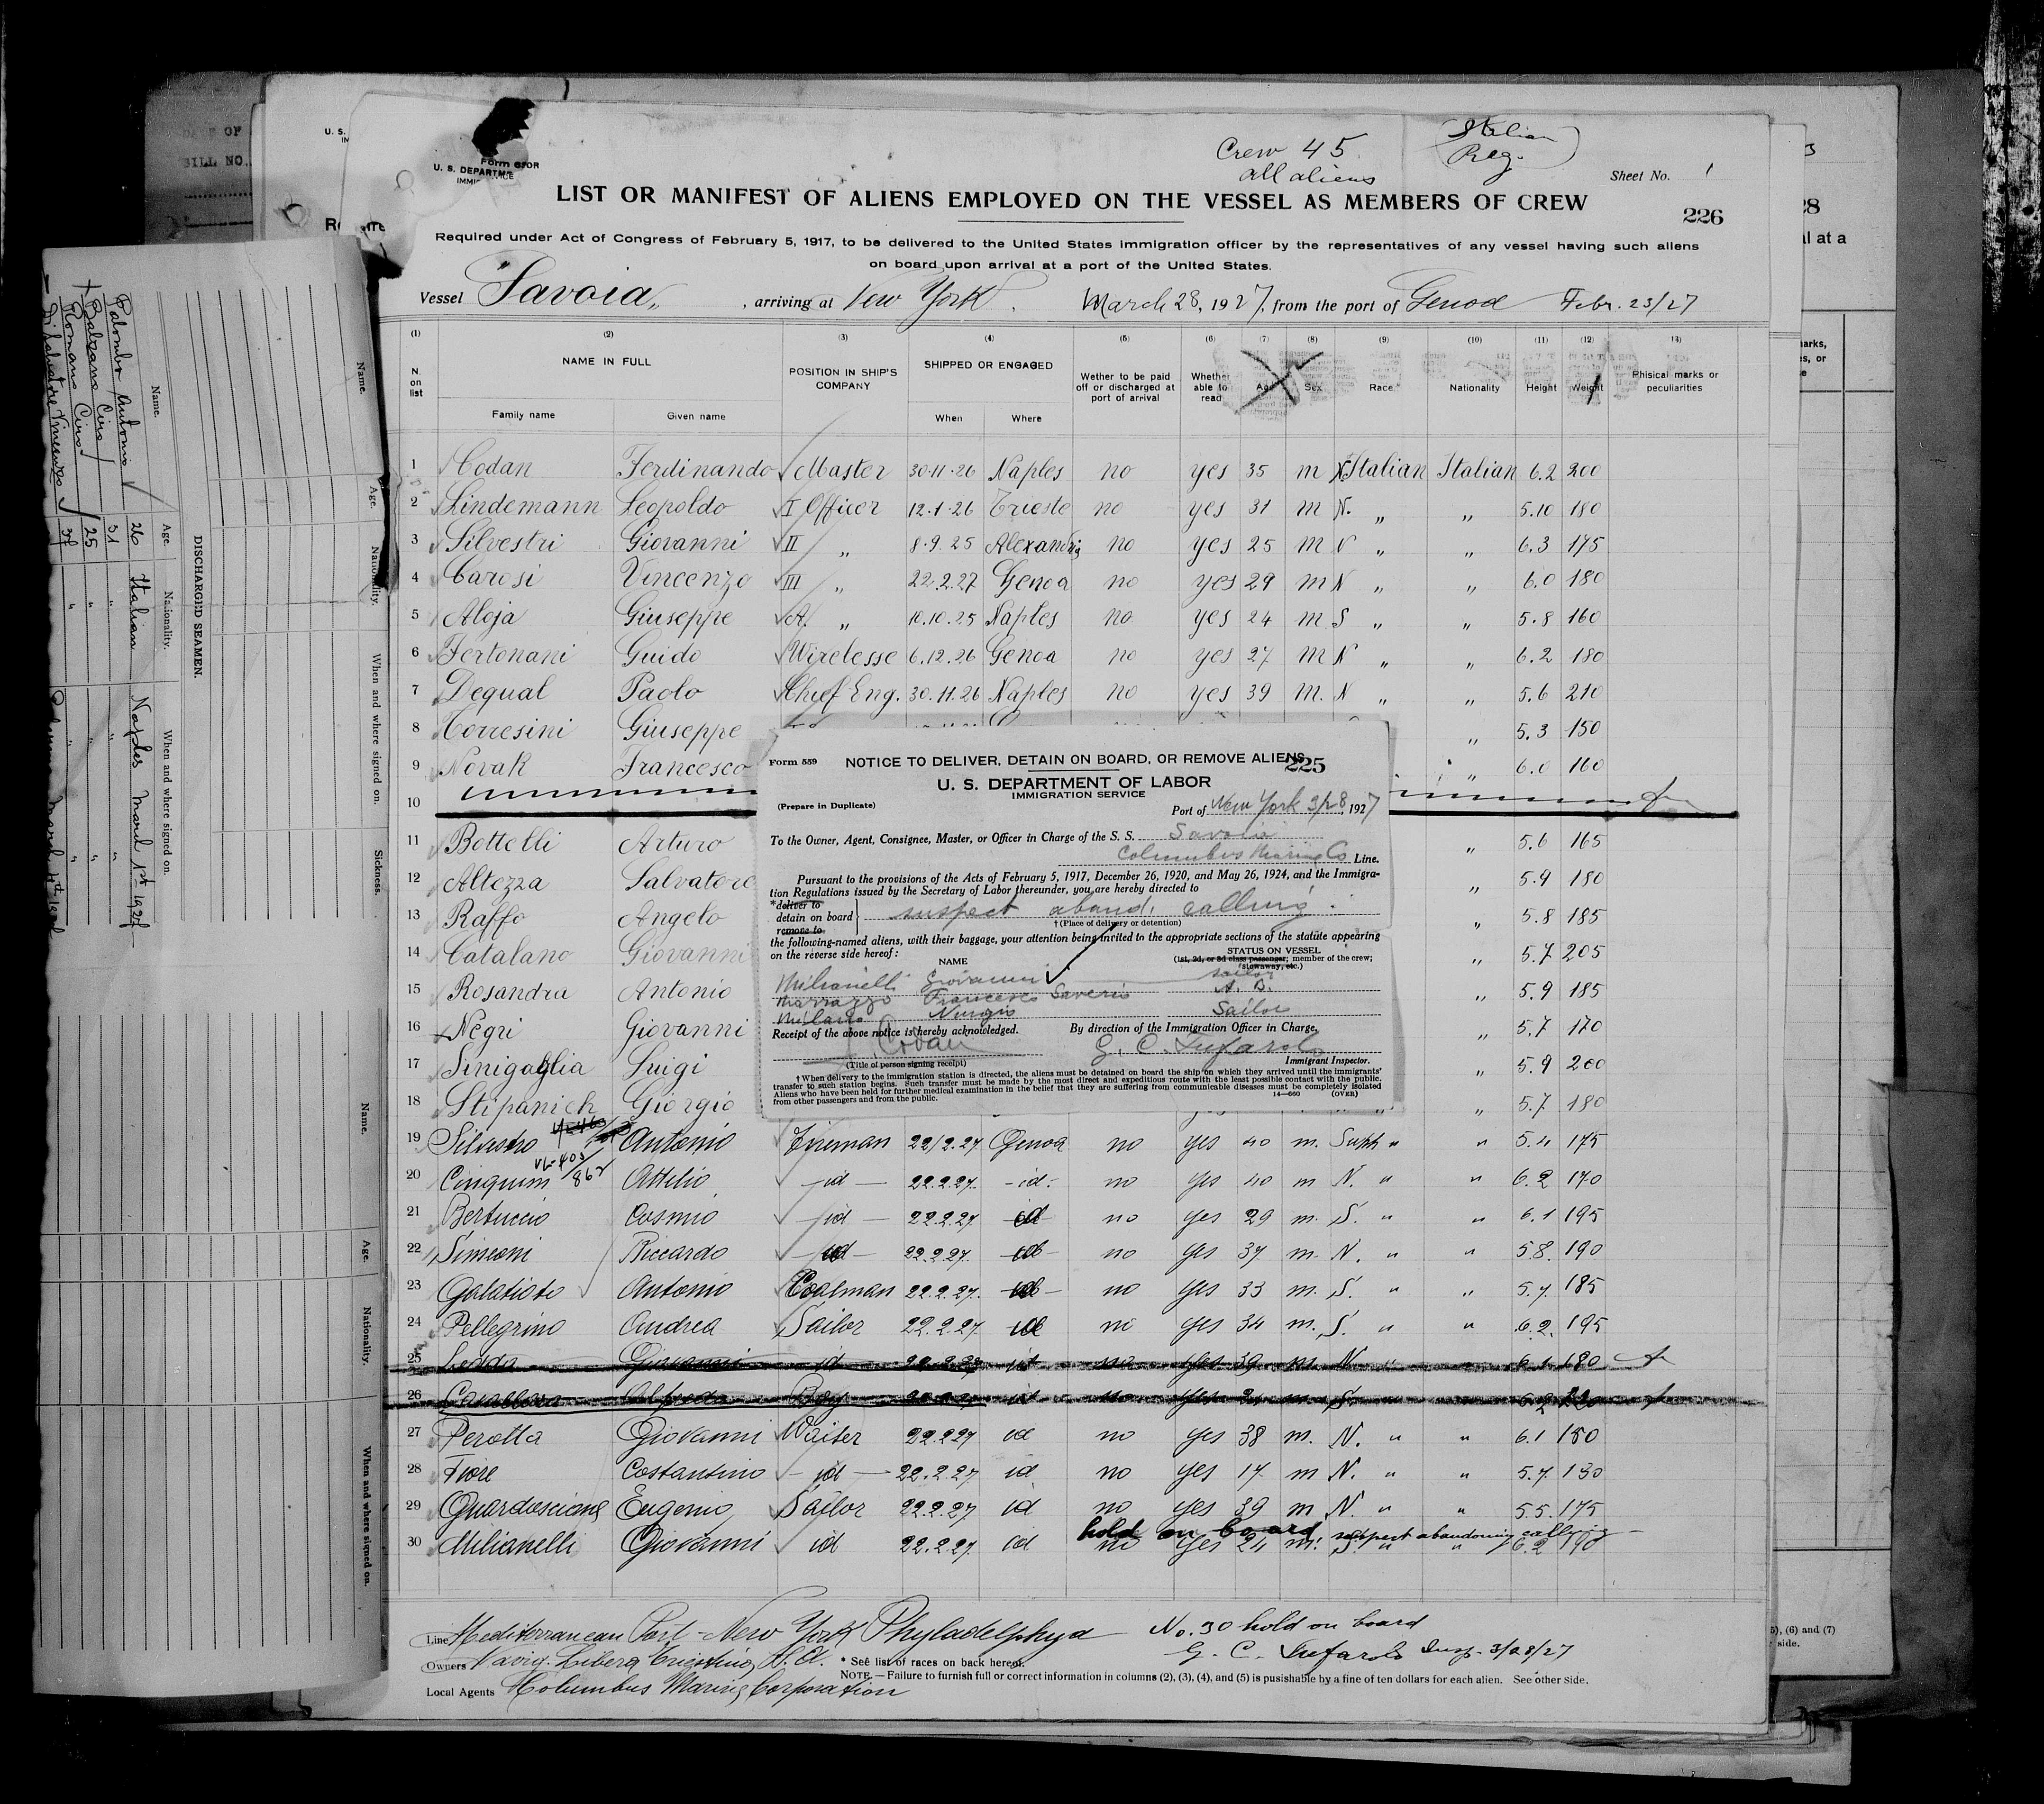 Crew 45
all aliens
Italian
Reg.
U. S. DEPARTM
Sheet No. 1
LIST OR MANIFEST OF ALIENS EMPLOYED ON THE VESSEL AS MEMBERS OF CREW
226
Required under Act of Congress of February 5, 1917, to be delivered to the United States immigration officer by the representatives of any vessel having such aliens
on board upon arrival at a port of the United States.
Vessel "Savoia", arriving at New York. March 28, 1927, from the port of Genoa Febr. 23/27
(1) (2) (3) (4) (5) (6) (7) (8) (9) (10) (11) (12) (13)
N. on list NAME IN FULL POSITION IN SHIP'S COMPANY SHIPPED OR ENGAGED Wether to be paid off or discharged at port of arrival Whether able to read Age Sex Race* Nationality Height Weight Phisical marks or peculiarities
Family name Given name When Where
1 Codan Ferdinando Master 30-11-26 Naples no yes 35 m N Italian Italian 6.2 200
2 Lindemann Leopoldo I Officer 12.1.26 Trieste no yes 31 m N. " " 5.10 180
3 Silvestri Giovanni II " 8.9.25 Alexandria no yes 25 m N " " 6.3 175
4 Carosi Vincenzo III " 22.2.27 Genoa no yes 29 m N " " 6.0 180
5 Aloja Giuseppe A. " 10.10.25 Naples no yes 24 m S " " 5.8 160
6 Fertonani Guido Wirelesse 6.12.26 Genoa no yes 27 m N " " 6.2 180
7 Dequal Paolo Chief Eng. 30.11.26 Naples no yes 39 m. N " " 5.6 210
8 Torresini Giuseppe " 5.3 150
9 Novak Francesco " 6.0 160
10
11 Bottelli Arturo " 5.6 165
12 Altezza Salvatore " 5.9 180
13 Raffo Angelo " 5.8 185
14 Catalano Giovanni " 5.7 205
15 Rosandra Antonio " 5.9 185
16 Negri Giovanni " 5.7 170
17 Sinigaglia Luigi " 5.9 200
18 Stipanich Giorgio " 5.7 180
19 Silvestro Antonio Fireman 22/2.27 Genoa no yes 40 m. South " " 5.4 175
20 Cinquini Attilio id 22.2.27 id. no yes 40 m N. " " 6.2 170
21 Bertuccio Cosmio id 22.2.27 id no yes 29 m. S. " " 6.1 195
22 Simeoni Riccardo id 22.2.27 id no yes 37 m. N. " " 5.8. 190
23 Galatioto Antonio Coalman 22.2.27. id no yes 33 m. S. " " 5.7 185
24 Pellegrino Andrea Sailor 22.2.27 id no yes 34 m. S. " " 6.2. 195
25 Ledda Giovanni id 22.2.27 id no yes 39 m N. " 6.1 180
26 Alfredo Boy id no yes m. S. 6.2 220
27 Perotta Giovanni Waiter 22.2.27 id no yes 38 m. N. " " 6.1 180
28 Fiore Costantino id 22.2.27 id no yes 17 m N. " " 5.7 130
29 Eugenio Sailor 22.2.27 id no yes 39 m N. " " 5.5. 175
hold on board, suspect abandoning calling
30 Milianelli Giovanni id 22.2.27 id no yes 24 m. S. " " 6.2 190
Line Mediterranean Port - New York Phyladelphya
No. 30 hold on board
Owners Navig. Libera Triestina S. A.
* See list of races on back hereof.
Insp. 3/28/27
NOTE. — Failure to furnish full or correct information in columns (2), (3), (4), and (5) is pusishable by a fine of ten dollars for each alien. See other Side.
Local Agents Columbus Marine Corporation
Form 559
NOTICE TO DELIVER, DETAIN ON BOARD, OR REMOVE ALIENS
225
U. S. DEPARTMENT OF LABOR
IMMIGRATION SERVICE
(Prepare in Duplicate)
Port of New York 3/28, 1927
To the Owner, Agent, Consignee, Master, or Officer in Charge of the S. S. Savoia
Columbus Marine Co Line.
Pursuant to the provisions of the Acts of February 5, 1917, December 26, 1920, and May 26, 1924, and the Immigra-
tion Regulations issued by the Secretary of Labor thereunder, you are hereby directed to
*deliver to
detain on board suspect aband. calling.
remove to
† (Place of delivery or detention)
the following-named aliens, with their baggage, your attention being invited to the appropriate sections of the statute appearing
on the reverse side hereof:
NAME
STATUS ON VESSEL
(1st, 2d, or 3d class passenger; member of the crew;
stowaway, etc.)
Milianelli Giovanni sailor
Marrazzo Francesco Saverio A. B.
Milano Nunzio Sailor
Receipt of the above notice is hereby acknowledged.
By direction of the Immigration Officer in Charge,
Codan
(Title of person signing receipt)
Immigrant Inspector.
† When delivery to the immigration station is directed, the aliens must be detained on board the ship on which they arrived until the immigrants'
transfer to such station begins. Such transfer must be made by the most direct and expeditious route with the least possible contact with the public.
Aliens who have been held for further medical examination in the belief that they are suffering from communicable diseases must be completely isolated
from other passengers and from the public.
14—660 (OVER)
DISCHARGED SEAMEN.
Name. Age. Nationality. When and where signed on.
Palombo Antonio 26 Italian Naples March 1st 1927
Balzano Ciro 31 " "
Romano Ciro 25 " "
Di Salvatore Vincenzo
Name. Age. Nationality. When and where signed on. Sickness.
Name. Age. Nationality. When and where signed on.
BILL NO.
al at a
5), (6) and (7)
side.